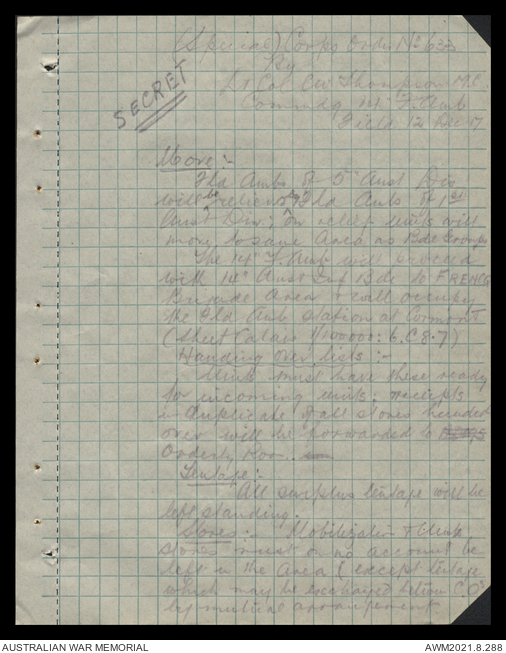 (Special) Corps Order No 633
By
Lt Col CW Thompson MC
Commdg 14 F. Amb
Field 12 Dec 17
SECRET
Move:-
Fld Ambs of 5 Aust Div
will be relieved by Fld Ambs of 1st
Aust Div; on relief units will
move to same Area as Bde Groups
The 14 F. Amb will proceed
with 14 Aust Inf Bde to FRENCQ
Brigade Area & will occupy
the Fld Amb station at Cormont
(Sheet Calais 1/100000: 6.C 8.7)
Handing Over lists:-
Units must have these ready
for incoming units. receipts
in duplicate of all stores handed
over will be forwarded to
Orderly Room.
Tentage:-
All surplus tentage will be
left standing.
Stores:- Mobilization & Unit
stores must on no account be
left in the Area (except tentage
which may be exchanged between C.Os
by mutual arrangement
AUSTRALIAN WAR MEMORIAL
AWM2021.8.288